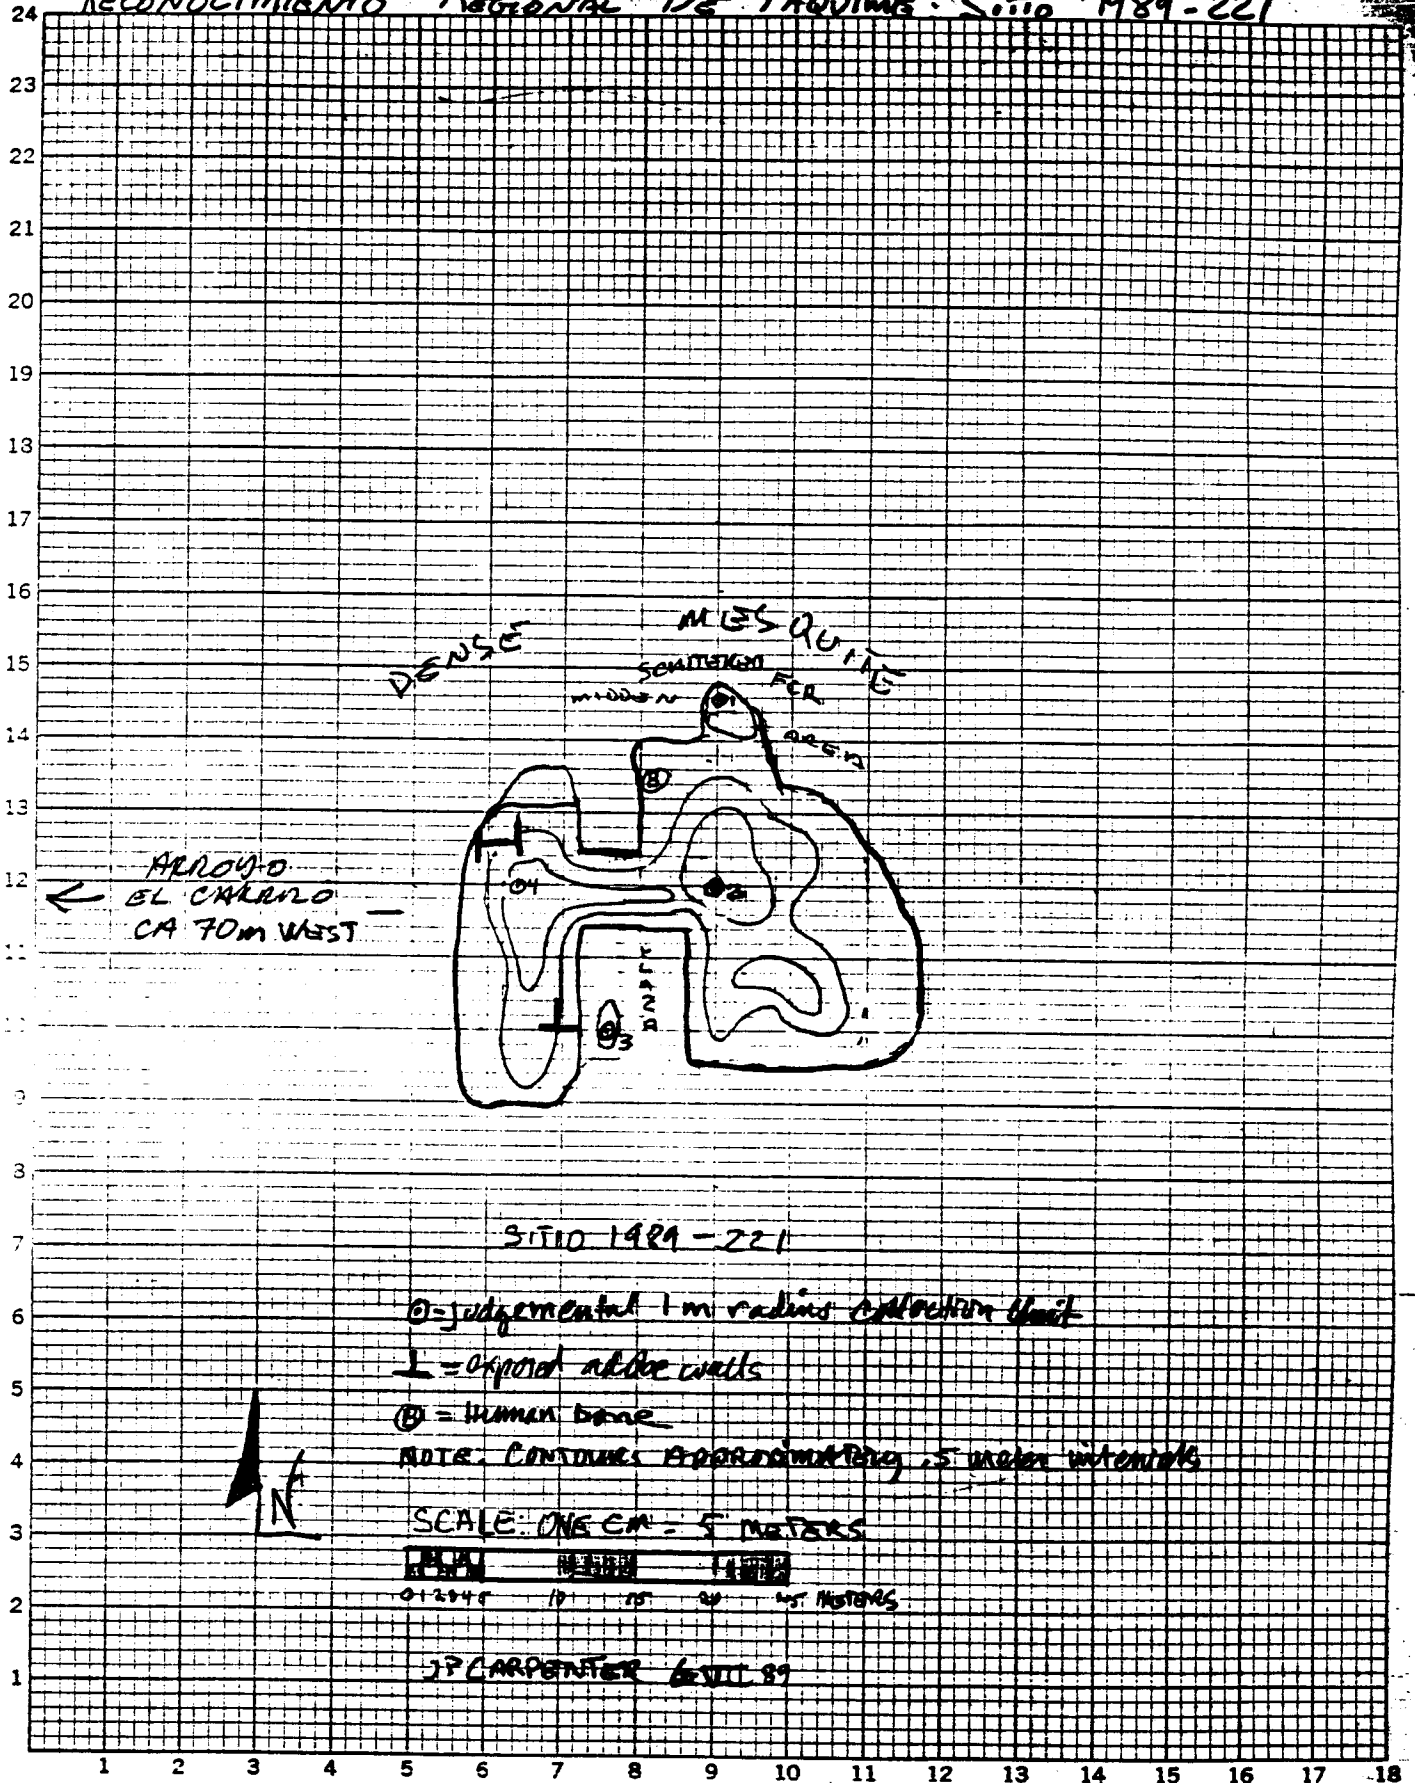 RECONOCIMIENTO REGIONAL DE PAQUIME: Sitio 1989-221
24
23
22
21
20
19
18
17
16
15
14
13
12
11
9
7
6
5
4
3
2
1
DENSE MESQUITE
SCATTERED FCR AREA
MIDDEN
1
B
4
2
ARROYO
EL CARRIZO
CA 70m WEST
PLAZA
3
SITIO 1989-221
⊙=judgemental 1 m radius collection unit
⊥ = exposed adobe walls
Ⓑ = Human bone
NOTE: CONTOURS APPROXIMATELY .5 meter intervals
N
SCALE: ONE CM = 5 METERS
0 1 2 3 4 5 10 15 20 25 METERS
JP CARPENTER 89
1 2 3 4 5 6 7 8 9 10 11 12 13 14 15 16 17 18